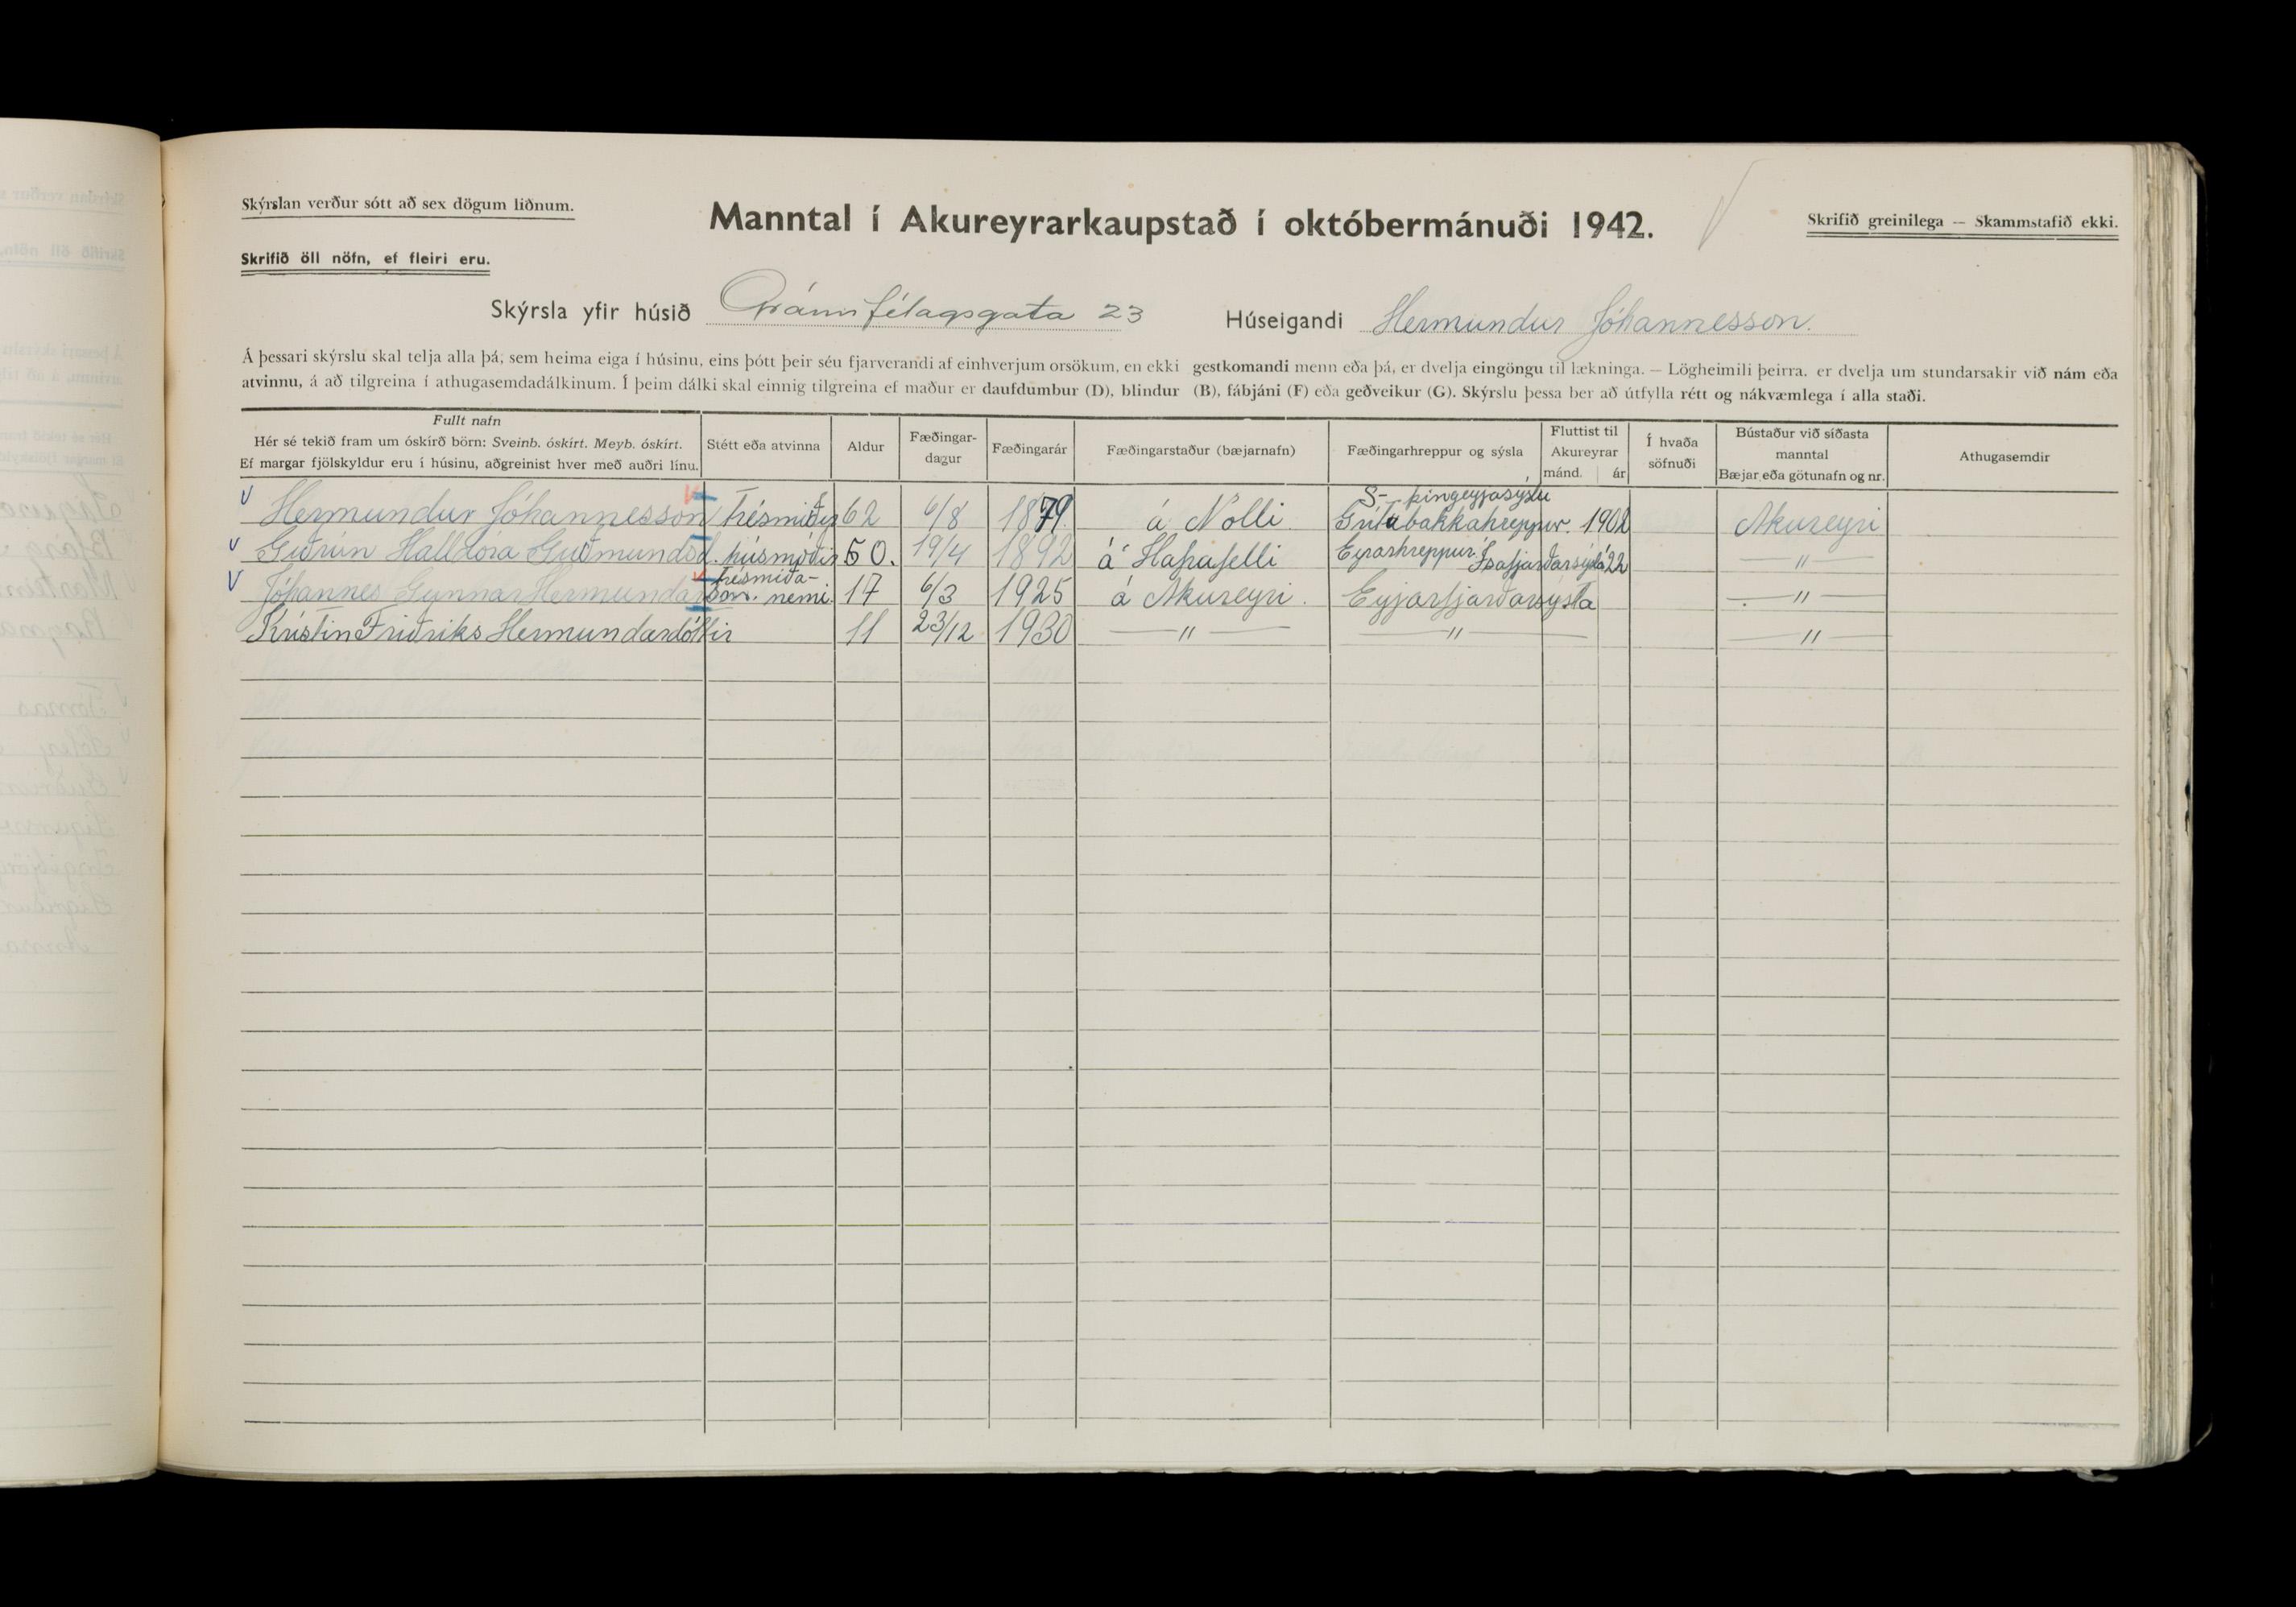 Skýrslan verður sótt að sex dögum liðnum.
Manntal í Akureyrarkaupstað í októbermánuði 1942.
Skrifið greinilega — Skammstafið ekki.
Skrifið öll nöfn, ef fleiri eru.
Skýrsla yfir húsið Gránufélagsgata 23 Húseigandi Hermundur Jóhannesson.
Á þessari skýrslu skal telja alla þá, sem heima eiga í húsinu, eins þótt þeir séu fjarverandi af einhverjum orsökum, en ekki gestkomandi menn eða þá, er dvelja eingöngu til lækninga. — Lögheimili þeirra. er dvelja um stundarsakir við nám eða
atvinnu, á að tilgreina í athugasemdadálkinum. Í þeim dálki skal einnig tilgreina ef maður er daufdumbur (D), blindur (B), fábjáni (F) eða geðveikur (G). Skýrslu þessa ber að útfylla rétt og nákvæmlega í alla staði.
Fullt nafn
Hér sé tekið fram um óskírð börn: Sveinb. óskírt. Meyb. óskírt.
Ef margar fjölskyldur eru í húsinu, aðgreinist hver með auðri línu.
Stétt eða atvinna
Aldur
Fæðingar-
dagur
Fæðingarár
Fæðingarstaður (bæjarnafn)
Fæðingarhreppur og sýsla
Fluttist til
Akureyrar
mánd. ár
Í hvaða
söfnuði
Bústaður við síðasta
manntal
Bæjar eða götunafn og nr.
Athugasemdir
S- þingeyjasýslu
v Hermundur Jóhannesson Trésmiður 62 6/8 1879. á Nolli. Grítubakkahreppur. 1902 Akureyri
v Guðrún Halldóra Guðmundsd. húsmóðir 50. 19/4 1892 á Hafrafelli Eyrarhreppur. Ísafjarðarsýsla 22 — " —
v Jóhannes Gunnar Hermundarson. trésmíða- nemi. 17 6/3 1925 á Akureyri. Eyjarfjarðarsýsla — " —
Kristín Friðriks Hermundardóttir 11 23/12 1930 — " — — " — — " —